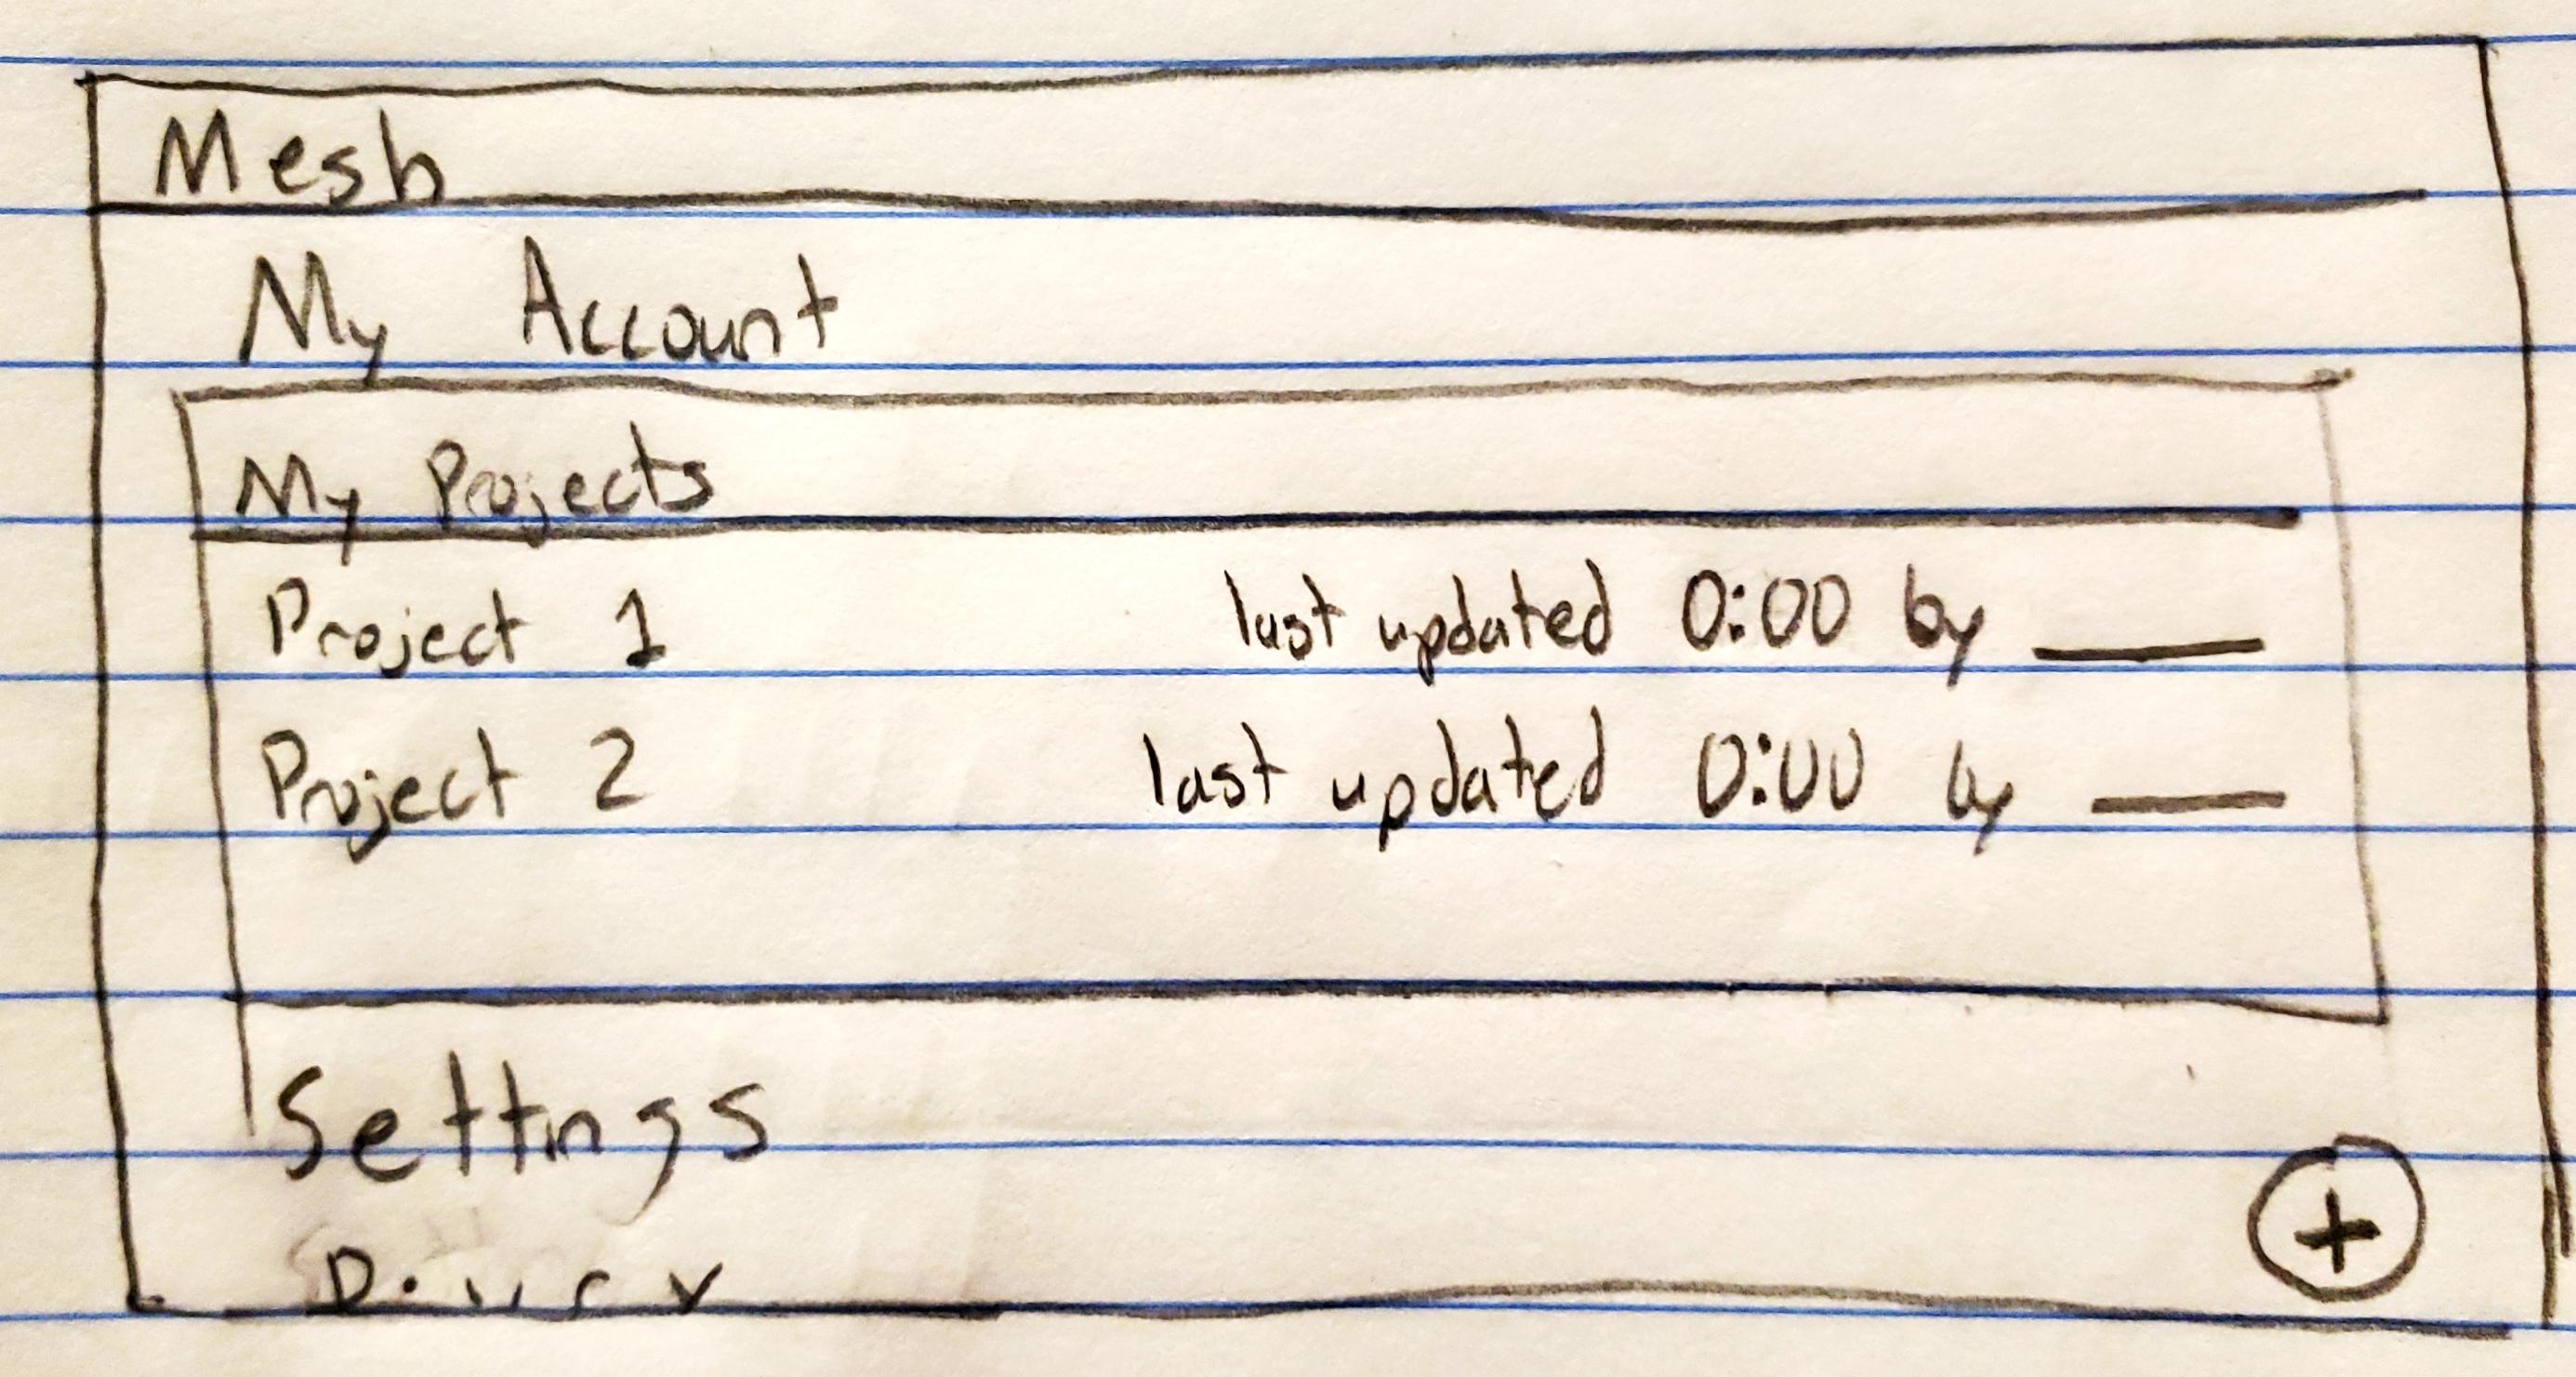 Mesh
My Account
My Projects
Project 1 last updated 0:00 by ___
Project 2 last updated 0:00 by ___
Settings
+